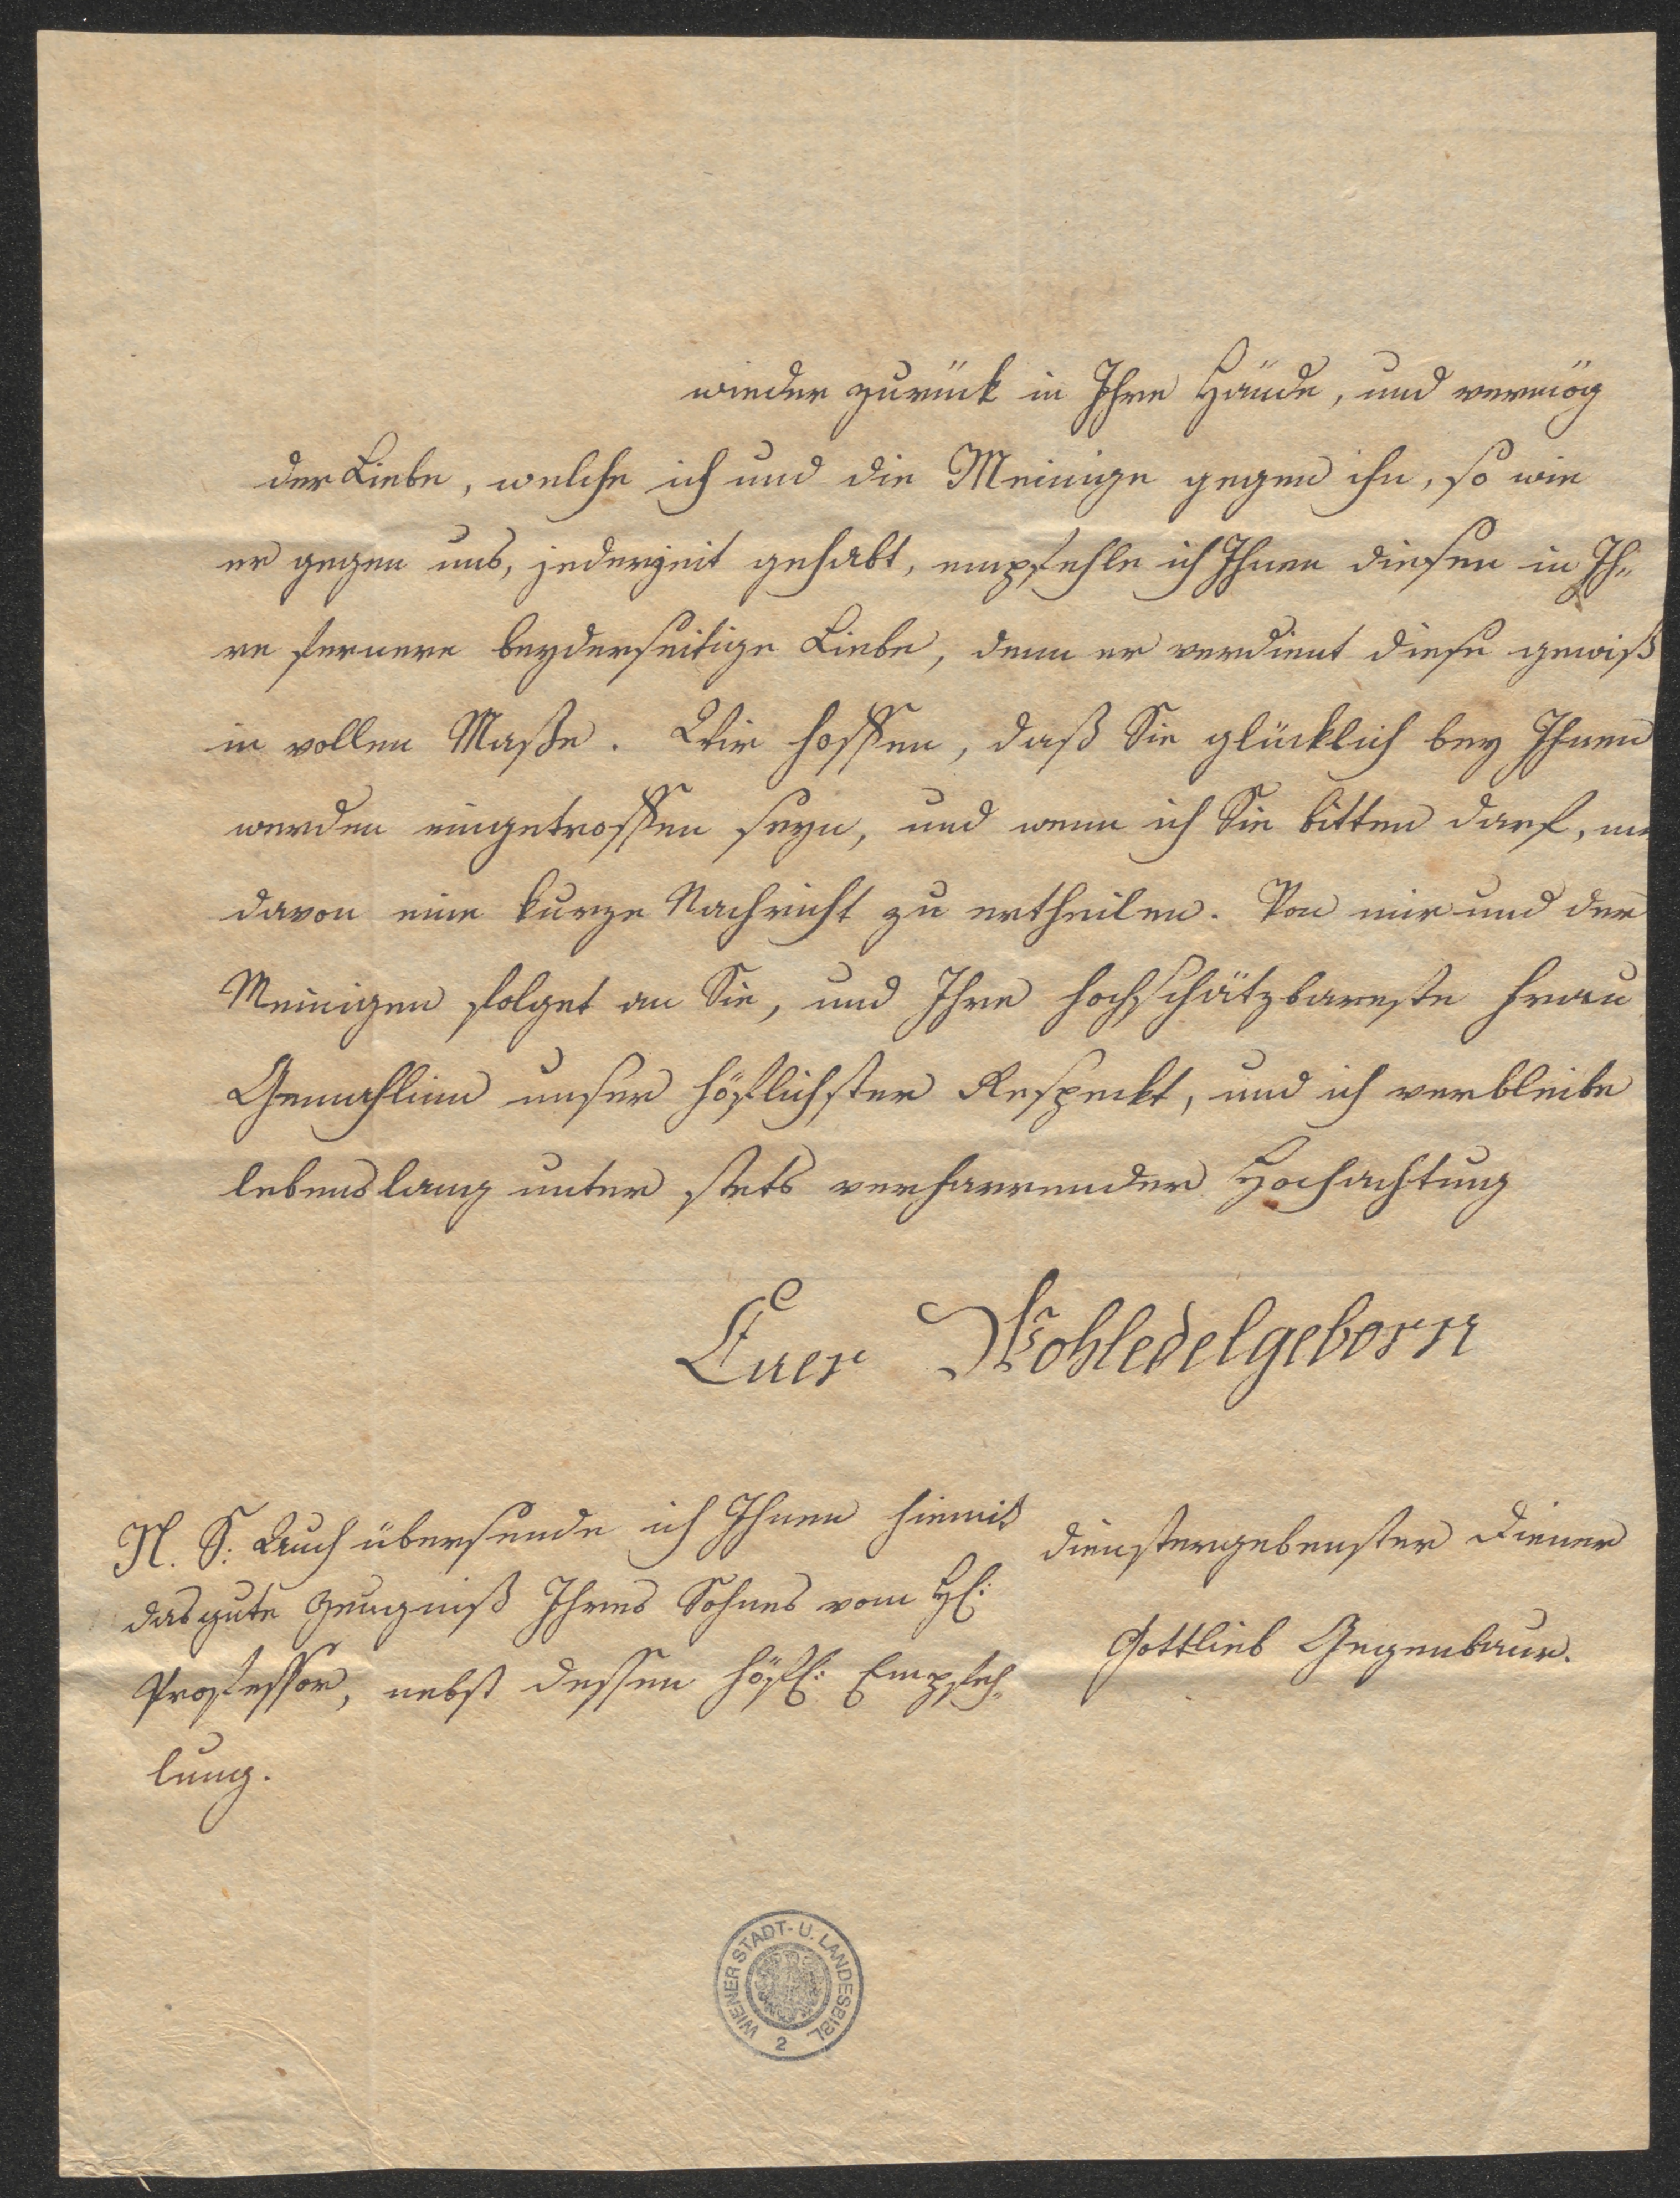 wieder zurück in Ihre Hände, und vermög
der Liebe, welche ich und die Meinige gegen ihn, so wie
er gegen uns, jederzeit gehabt, empfehle ich Ihnen diesen in Ih„
re fernere beyderseitige Liebe, denn er verdient diese gewiß
in vollen Maße. Wir hoffen, daß Sie glücklich bey Ihnen
werden eingetroffen seyn, und wenn ich Sie bitten darf,
davon eine kurze Nachricht zu ertheilen. Von mir und der
Meinigen folget an Sie, und Ihre hochschätzbareste Frau
Gemahlinn unser höflichster Respeckt, und ich verbleibe
lebenslang unter stets verharrender Hochachtung
Euer Wohledelgeborn
dienstergebenster Diener
Gottlieb Gegenbaur.
N. S: Auch übersende ich Ihnen hiemit
das gute Zeugniß Ihres Sohnes vom H:
Professor, nebst dessen höfl: Empfeh„
lung.
WIENER STADT- U. LANDESBIBL.
2